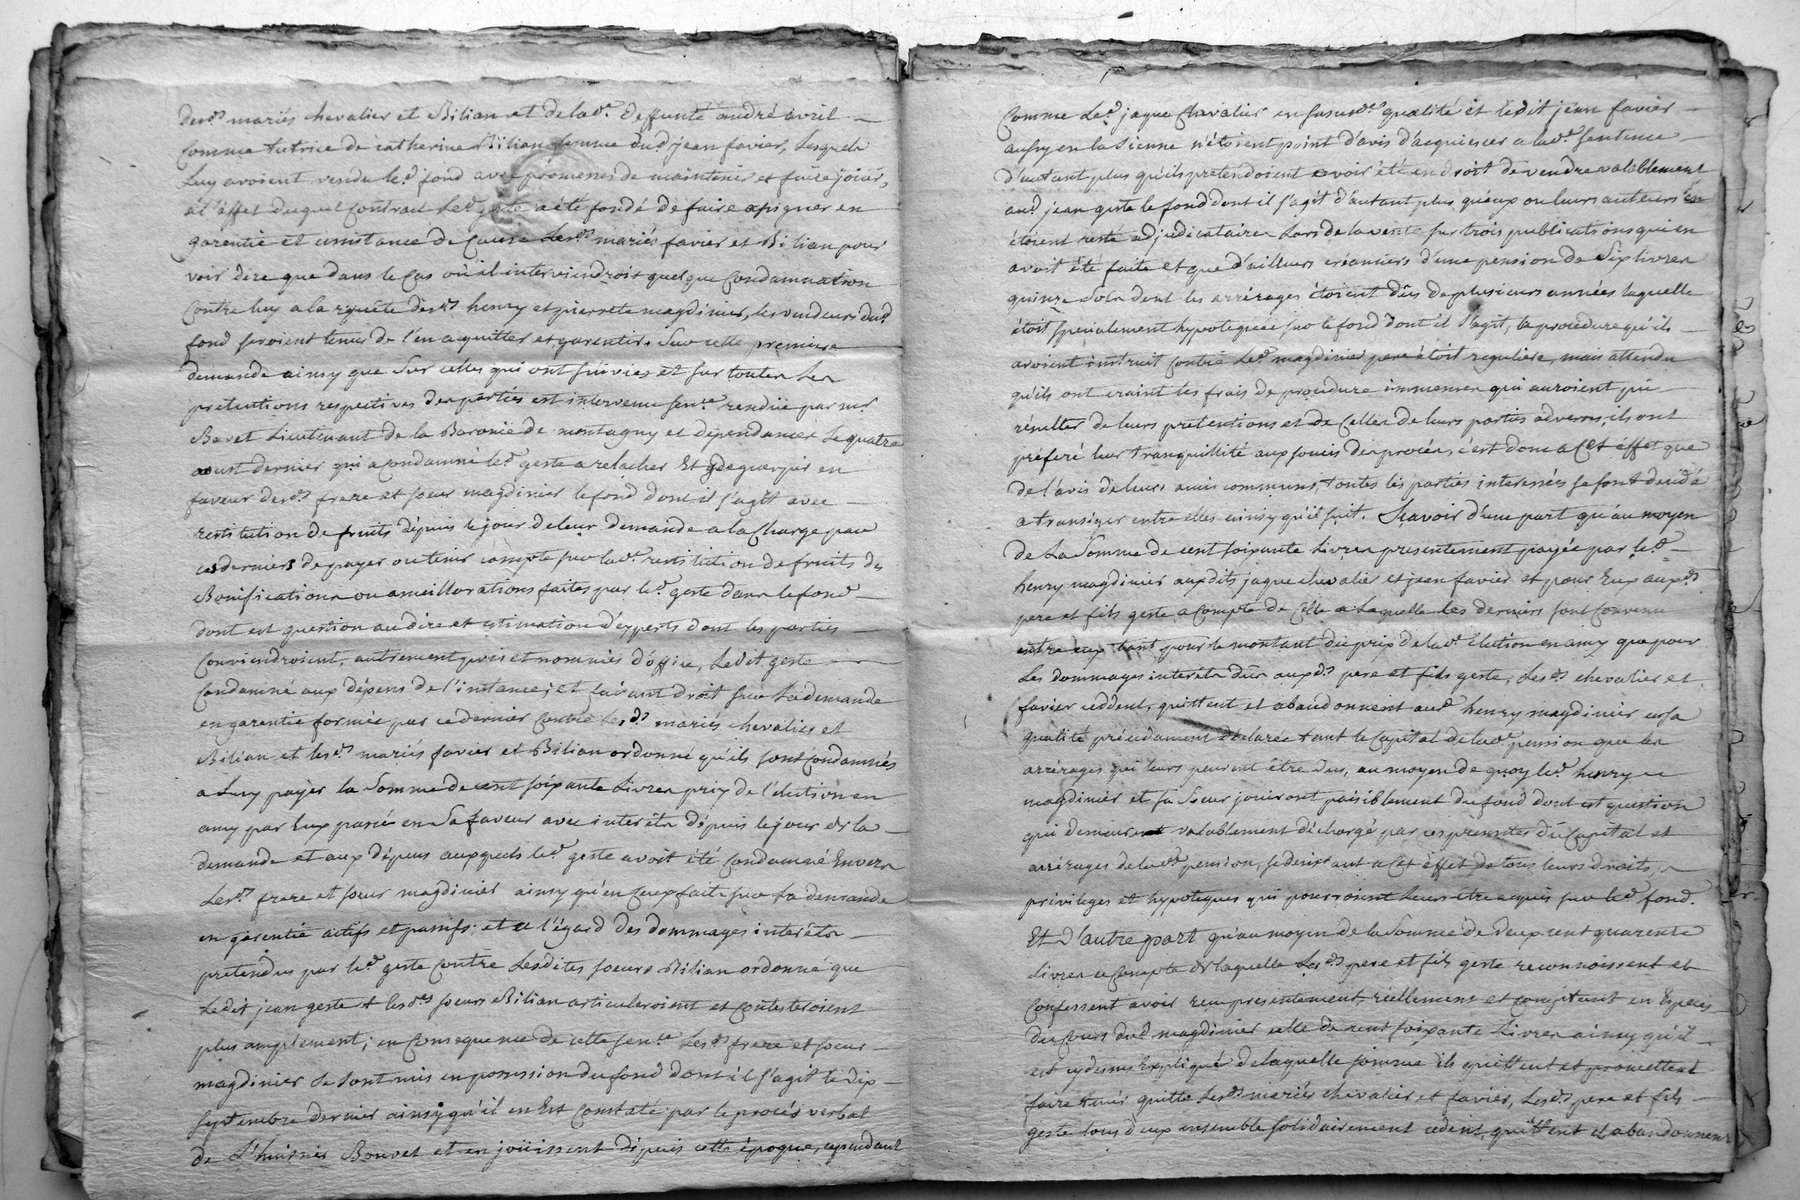 desd. mariés chevalier et Bilian et de lad.e deffunte andré avril
comme tutrice de catherine Bilian femme dud jean favier, lesquels
luy avoient vendu led. fond avec promesses de maintenir et faire joüir,
a l'effet duquel contract led. geste a été fondé de faire assigner en
garentie et assistance de cause lesd. mariés favier et Bilian pour
voir dire que dans le cas où il interviendroit quelque condamnation
contre luy a la rquête desd. henry et pierrete magdinier, les vendeurs dud.
fond seroient tenus de l'en aquitter et garentir. Sur cette premiere
demande ainsy que sur celles qui ont suivies et sur toutes les
pretentions respectives des parties est intervenu sen.ce rendüe par mr.
Bavet Lieutenant de la Baronie de montagny et dépendances le quatre
aoust dernier qui a condamné led. geste a relacher et déguerpir en
faveur desd. frere et soeur magdinier le fond dont il s'agit avec
restitution de fruits dépuis le jour de leur demande a la charge par
ces derniers de payer ou tenir compte sur lad.e restitution de fruits des
Bonifications ou ameillorations faites par led. geste dans le fond
dont est question au dire et estimation d'experts dont les parties
conviendroient, autrement pris et nommés d'office, ledit geste
condamné aux dépens de l'instance; et faisant droit sur la demande
en garentie formée par ce dernier contre lesd. mariés chevalier et
Bilian et lesd. mariés favier et Bilian ordonné qu'ils sont condamnés
a luy payer la somme de cent soixante Livres prix de l'election en
amy par eux passée en sa faveur avec interêts dépuis le jour de la
demande et aux dépens auxquels led. geste avoit été condamné envers
lesd. frere et soeur magdinier ainsy qu'en ceux faits sur sa demande
en garentie actifs et passifs; et a l'égard des dommages interêts
pretendus par led. geste contre lesdites soeurs Bilian ordonné que
ledit jean geste et lesd.es soeurs Bilian articuleroient et contesteroient
plus amplement; en consequence de cette sen.ce lesd. frere et soeur
magdinier se sont mis en possession du fond dont il s'agit le dix
septembre dernier ainsy qu'il en est constaté par le procés verbal
de l'huissier Bouvet et en joüissent dépuis cette époque, cependant
comme led. jaque chevalier en susd.e qualité et ledit jean favier
aussy en la sienne n'étoient point d'avis d'acquiescer a lad.e sentence
d'autant plus qu'ils pretendoient avoir été en droit de vendre valablement
aud. jean geste le fond dont il s'agit d'autant plus qu'eux ou leurs auteurs en
étoient resté adjudicataires lors de la vente sur trois publications qui en
avoit été faite et que d'ailleurs créanciers d'une pension de six livres
quinze sols dont les arrérages étoient dûs de plusieurs années laquelle
étoit specialement hypotequée sur le fond dont il s'agit, la procédure qu'ils
avoient instruit contre led. magdinier pere étoit reguliere, mais attendu
qu'ils ont craint les frais de procedure immenses qui auroient pû
résulter de leurs pretentions et de celles de leurs parties adverses, ils ont
préferé leur tranquillité aux soucis des procés, c'est donc a cet effet que
de l'avis de leurs amis communs, toutes les parties interessées se sont decidé
a transiger entre elles ainsy qu'il suit. Scavoir d'une part qu'au moyen
de la somme de cent soixante Livres presentement payée par led.
henry magdinier auxdits jaque chevalier et jean favier et pour eux auxd.
pere et fils geste a compte de celle a laquelle les derniers sont convenu
entre eux tant pour le montant du prix de lad.e élection en amy que pour
les dommages interêts dûs auxd. pere et fils geste, lesd. chevalier et
favier ceddent, quittent et abandonnent aud. henry magdinier en sa
qualité précedament déclarée tant le capital de lad.e pension que les
arrérages qui leurs peuvent être dus, au moyen de quoy led. henry
magdinier et sa soeur joüiront paisiblement du fond dont est question
qui demeure valablement déchargé par ces presentes du capital et
arrérages de lad.e pension, se desistant a cet effet de tous leurs droits,
privileges et hypoteques qui pourroient leurs etre acquis sur led. fond.
Et d'autre part qu'au moyen de la somme de deux cent quarente
Livres a compte de laquelle lesd. pere et fils geste reconnoissent et
confessent avoir reçu presentement, réellement et comptant en especes
du cours dud. magdinier celle de cent soixante Livres ainsy qu'il
est cy dessus expliqué de laquelle somme ils quittent et promettent
faire tenir quitte lesd. mariés chevalier et favier, lesd. pere et fils
geste tous deux ensemble solidairement cedent, quittent et abandonnent